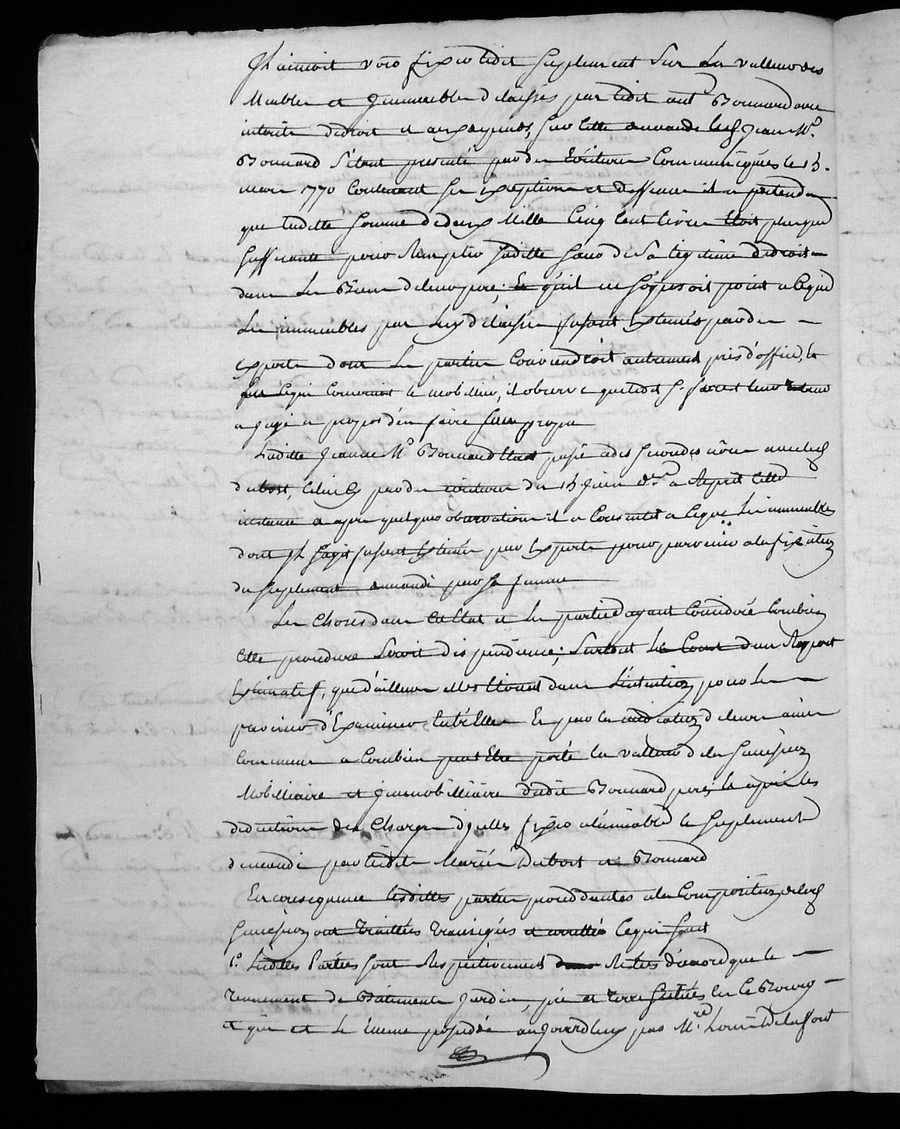 Il aimoit voir fixer ledit suplement sur la valleur des
Meubles et Immeubles delaissés par ledit ant. Bonnard avec
interets dedroit et aux depends, sur cette demande led. Jean M.
Bonnard s'étant presenté par des Ecritures Communiquées le 15.
mars 1770 Contenant ses Exeptions et deffences il a pretendu
que ladite somme dedeux Mille Cinq cent livres étoit plusque
suffisante pour Remplir ladite sœur de sa legitime dedroit
dans les Biens deleur pere; et qu'il ne s'oposoit point a ceque
les immeubles par luy delaissés fusent Estimés par des
experts dont les parties Conviendroit autrement pris d'office, et
Cequi Concerne le mobilier, il observe queledit
a jugé a propos d'en faire son propre
Ladite Jeanne M. Bonnard étant passé a des secondes nôces avecled.
dubost, Celui cy par des écritures du 15 Juin a Repris Cette
instance et apres quelques observations il a Consenti a Ceque les immeubles
dont il s'agit fusent Estimés par Experts pour parvenir a la fixation
du suplement demandé par sa femme
Les Choses dans Cet Etat et les parties ayant Considéré Combien
Cette procedure seroit dispendieuse; surtout le Cout d'un Raport
Estimatif, que d'ailleurs elles étoient dans l'intention pour les
prevenir d'Examiner Entr'Elles Et par la mediation de leurs amis
Communs a Combien peut Etre porté la valleur de la succession
Mobilliaire et Immobilliaire dudit Bonnard pere, et apres les
deductions des Charges d'icelles fixer a l'amiable le suplement
demandé par lesdits Mariés Dubost et Bonnard
En consequence lesdittes parties procedantes a la Composition delad.
succession ont Traittées Transigées et arretté Cequi suit
1.° Lesdittes Parties sont Respectivement Restées d'acord que le
Tennement de Batiments Jardin pré et terre scitués En ce Bourg
et qui est le meme possedée aujourd'huy par M.re Louis Delafont